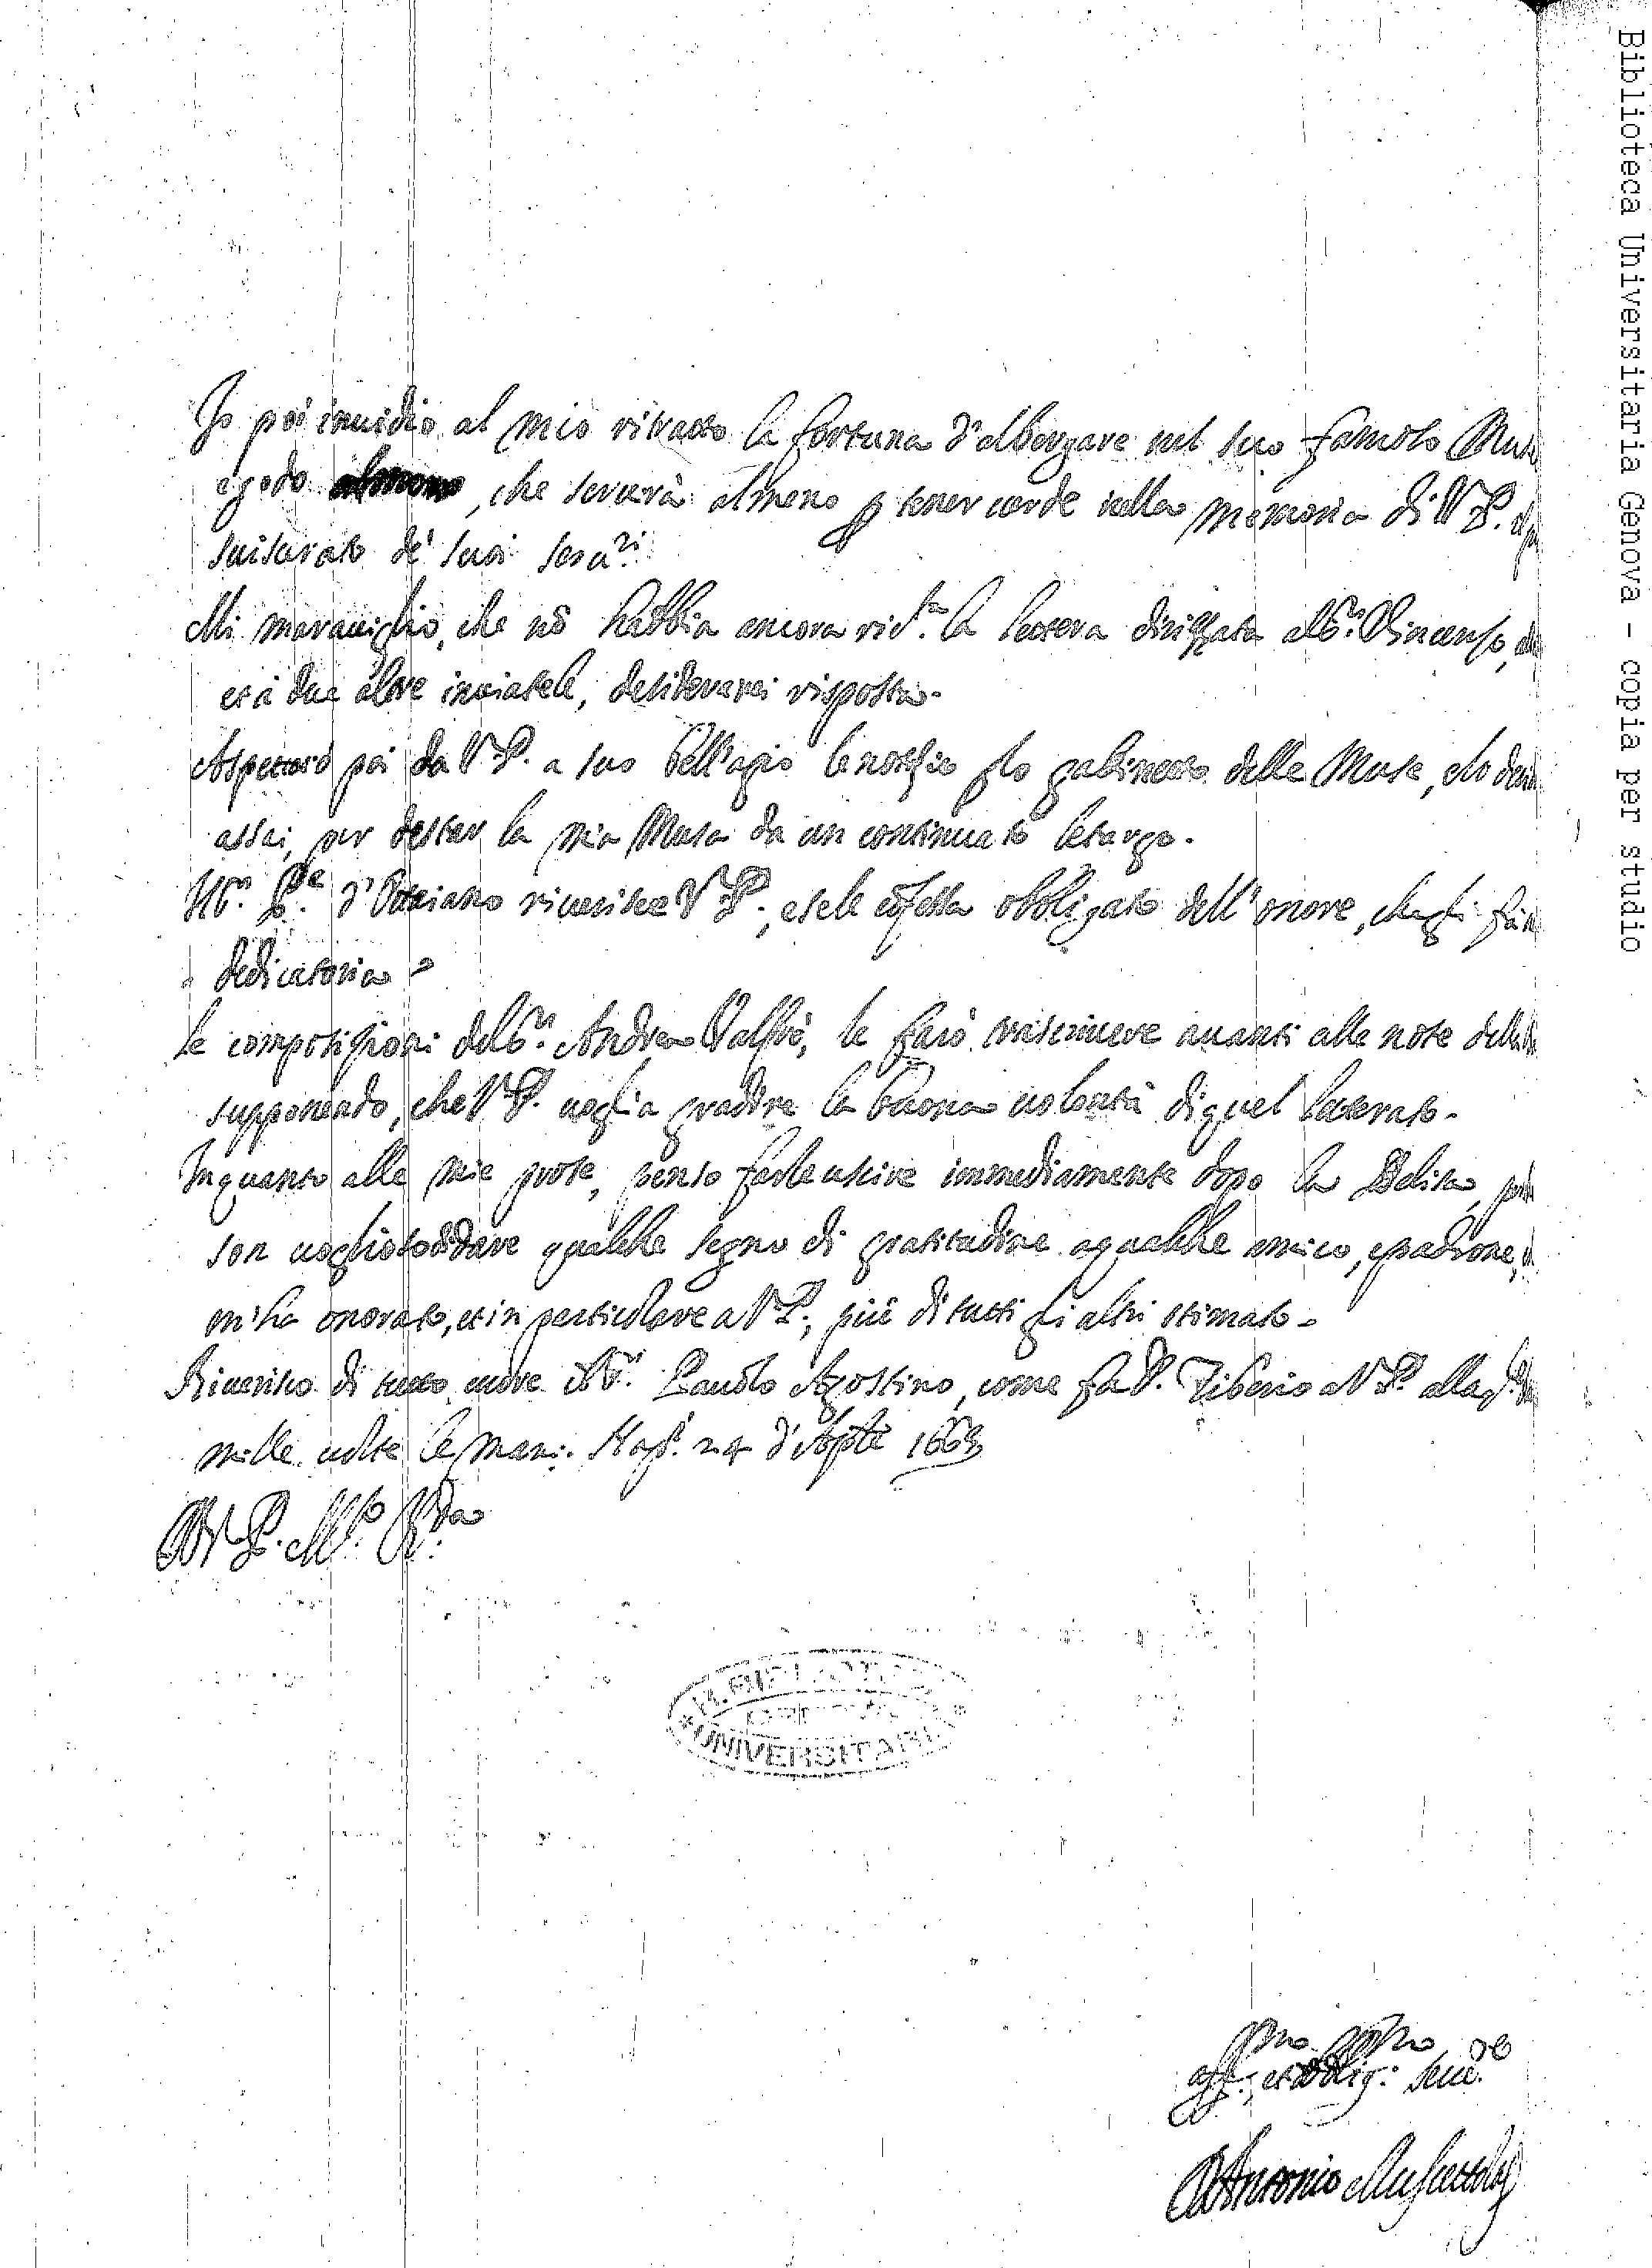 Io poi inuidio al mio ritratto la fortuna d'albergare nel suo famoso Muse
e godo, che seruirà almeno p tener uerde nella memoria di V P.
suiscerato de' suoi seru.ri
Mi marauiglio, che nō habbia ancora la lettera dirizzata al S.r Vincenzo,
et à due altre inuiatele, desiderarei risposta.
Aspetterò poi da V P. a suo bell'agio le notitie p lo gabinetto delle Muse, e lo
assai, per destar la mia Musa da un continuato letargo.
Il S.r P.e d'Ottaiano riuerisce V P., e se le cōfessa obbligato dell'onore, che gli fà
dedicatoria.
Le composizioni del S.r Andrea Valfrè, le farò trascriuere auanti alle note della
supponendo, che V P. uoglia gradire la buona uolontà di quel letterato.
In quanto alle mie prose, penso farle uscire immediamente dopo la Belisa,
son uoglioso di dare qualche segno di gratitudine a qualche amico, e padrone,
m'hà onorato, et in particolare a V P., più di tutti gli altri stimato.
Riuerisco di tutto cuore il S.r Pauolo Agostino, come fa D. Tiberio a V P. alla
mille uolte le mani. Nap. 24 d'Aple 1663
D V P. M.to R.da
aff.mo et obblig.mo seru.re
D Antonio Muscettola
UNIVERSITARIA
Biblioteca Universitaria Genova - copia per studio